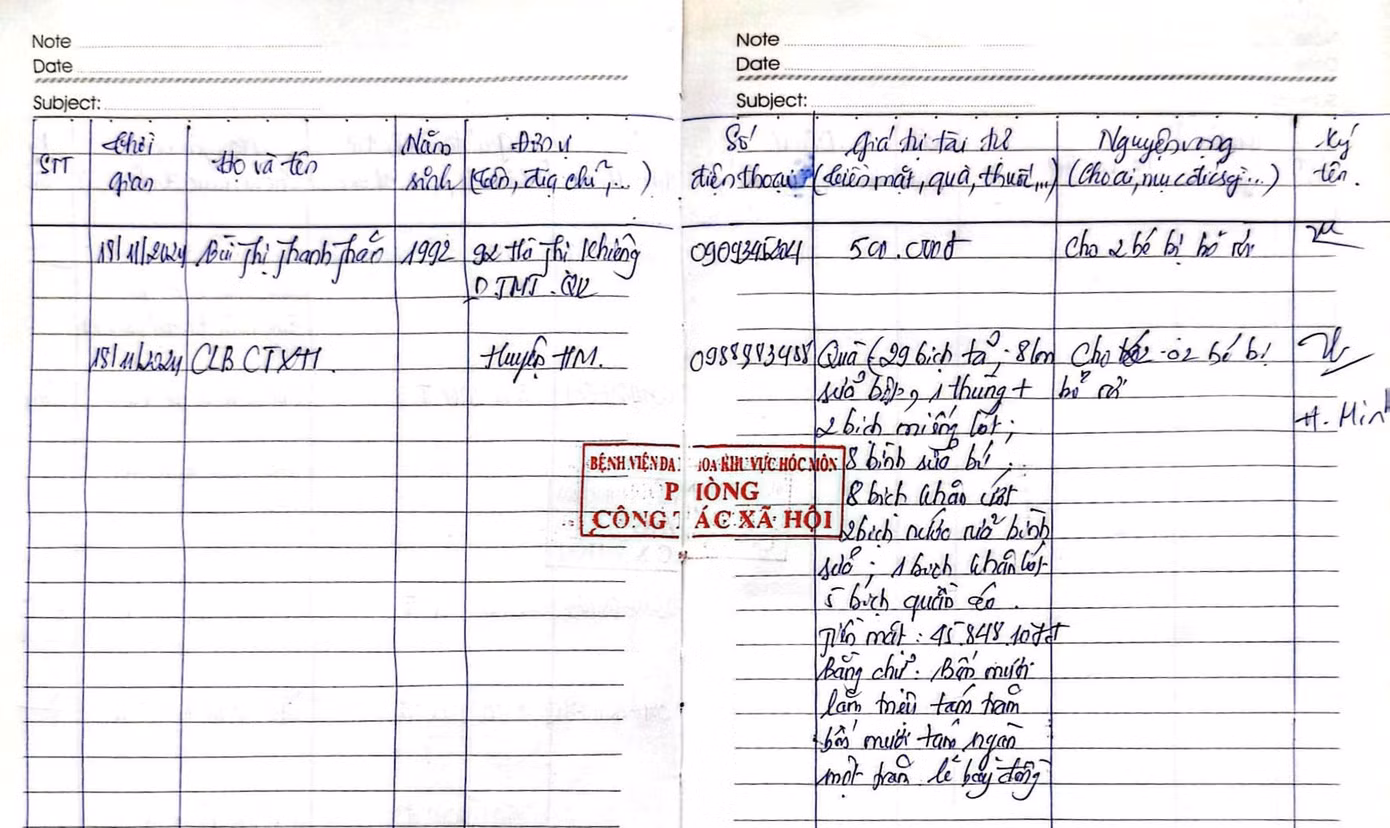 Note
Date
Subject:
STT
Thời gian
Họ và tên
Năm sinh
Đơn vị
(tên, địa chỉ,...)
18/11/2024 Bùi Thị Thanh Thảo 1992 92 Hà Thị Khiêng
P. TMT. Q12
18/11/2024 CLB CTXH. Huyện HM.
Note
Date
Subject:
Số điện thoại
Giá trị tài trợ
(tiền mặt, quà, thuốc,...)
Nguyện vọng
(Cho ai, mục đích gì...)
Ký tên.
500.000đ Cho 2 bé bị bỏ rơi
Quà (29 bịch tã; 8 lon Cho 02 bé bị
sữa bột, 1 thùng + bỏ rơi
2 bịch miếng lót; H. Minh
8 bình sữa bé.
8 bịch khăn ướt
2 bịch nước rửa bình
sữa; 1 bịch khăn lót
5 bịch quần áo.
Tiền mặt: 45.848.107đ
Bằng chữ: Bốn mươi
lăm triệu tám trăm
bốn mươi tám ngàn
một trăm lẻ bảy đồng
BỆNH VIỆN ĐA KHOA KHU VỰC HÓC MÔN
PHÒNG
CÔNG TÁC XÃ HỘI